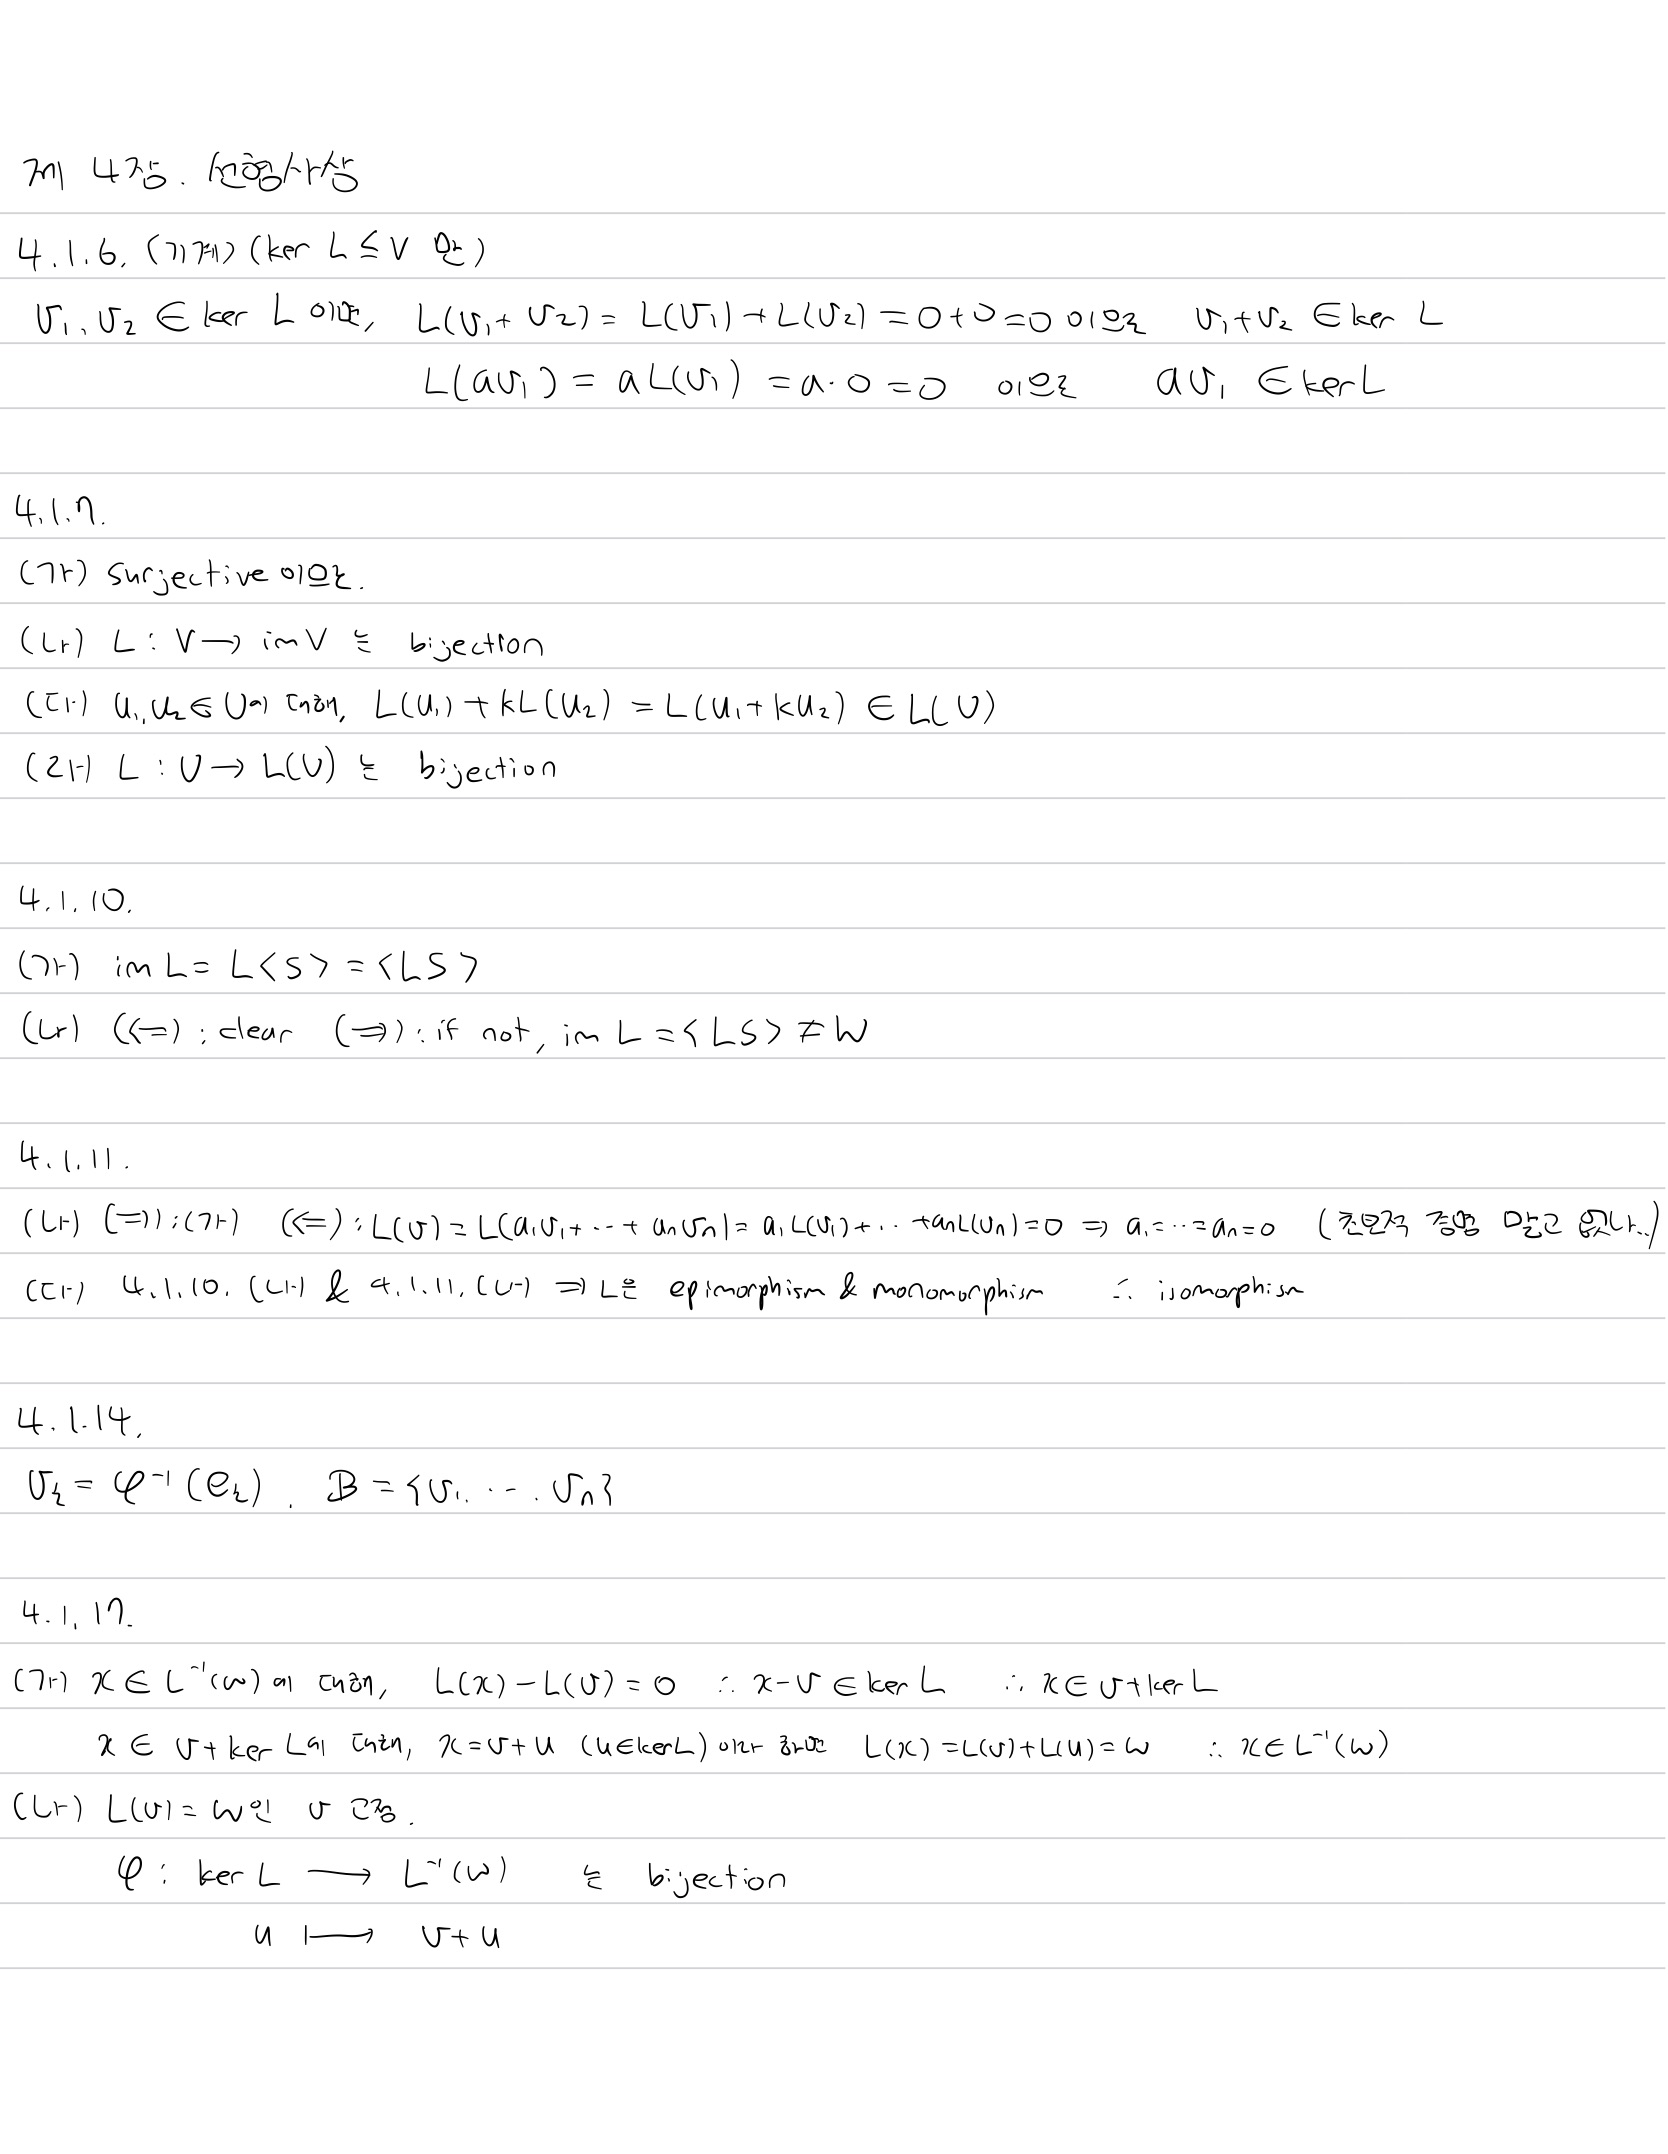 제 4장. 선형사상
4.1.6. (기계) (ker L ≤ V 만)
v₁, v₂ ∈ ker L 이면, L(v₁+ v₂) = L(v₁) + L(v₂) = 0+0=0 이므로 v₁+v₂ ∈ ker L
L(av₁) = aL(v₁) = a·0 = 0 이므로 av₁ ∈ ker L
4.1.7.
(가) surjective 이므로.
(나) L : V → im V 는 bijection
(다) u₁, u₂ ∈ U에 대해, L(u₁) + kL(u₂) = L(u₁+ku₂) ∈ L(U)
(라) L : U → L(U) 는 bijection
4.1.10.
(가) im L = L<S> = <LS>
(나) (⇐) : clear (⇒) : if not, im L = <LS> ≠ W
4.1.11.
(나) (⇒) : (가) (⇐) : L(v) = L(a₁v₁+ ··· + aₙvₙ) = a₁L(v₁)+ ·· +aₙL(vₙ) = 0 ⇒ a₁= ··· =aₙ=0 (초보적 증명 말고 없나..)
(다) 4.1.10. (나) & 4.1.11. (나) ⇒ L은 epimorphism & monomorphism ∴ isomorphism
4.1.14.
v_k = φ⁻¹(e_k). B = {v₁. ···. vₙ}
4.1.17.
(가) x ∈ L⁻¹(w) 에 대해, L(x) - L(v) = 0 ∴ x-v ∈ ker L ∴ x ∈ v+ker L
x ∈ v+ker L에 대해, x=v+u (u∈ker L) 이라 하면 L(x) = L(v)+L(u) = w ∴ x ∈ L⁻¹(w)
(나) L(v) = w인 v 고정.
φ : ker L ⟶ L⁻¹(w) 는 bijection
u ⟼ v+u